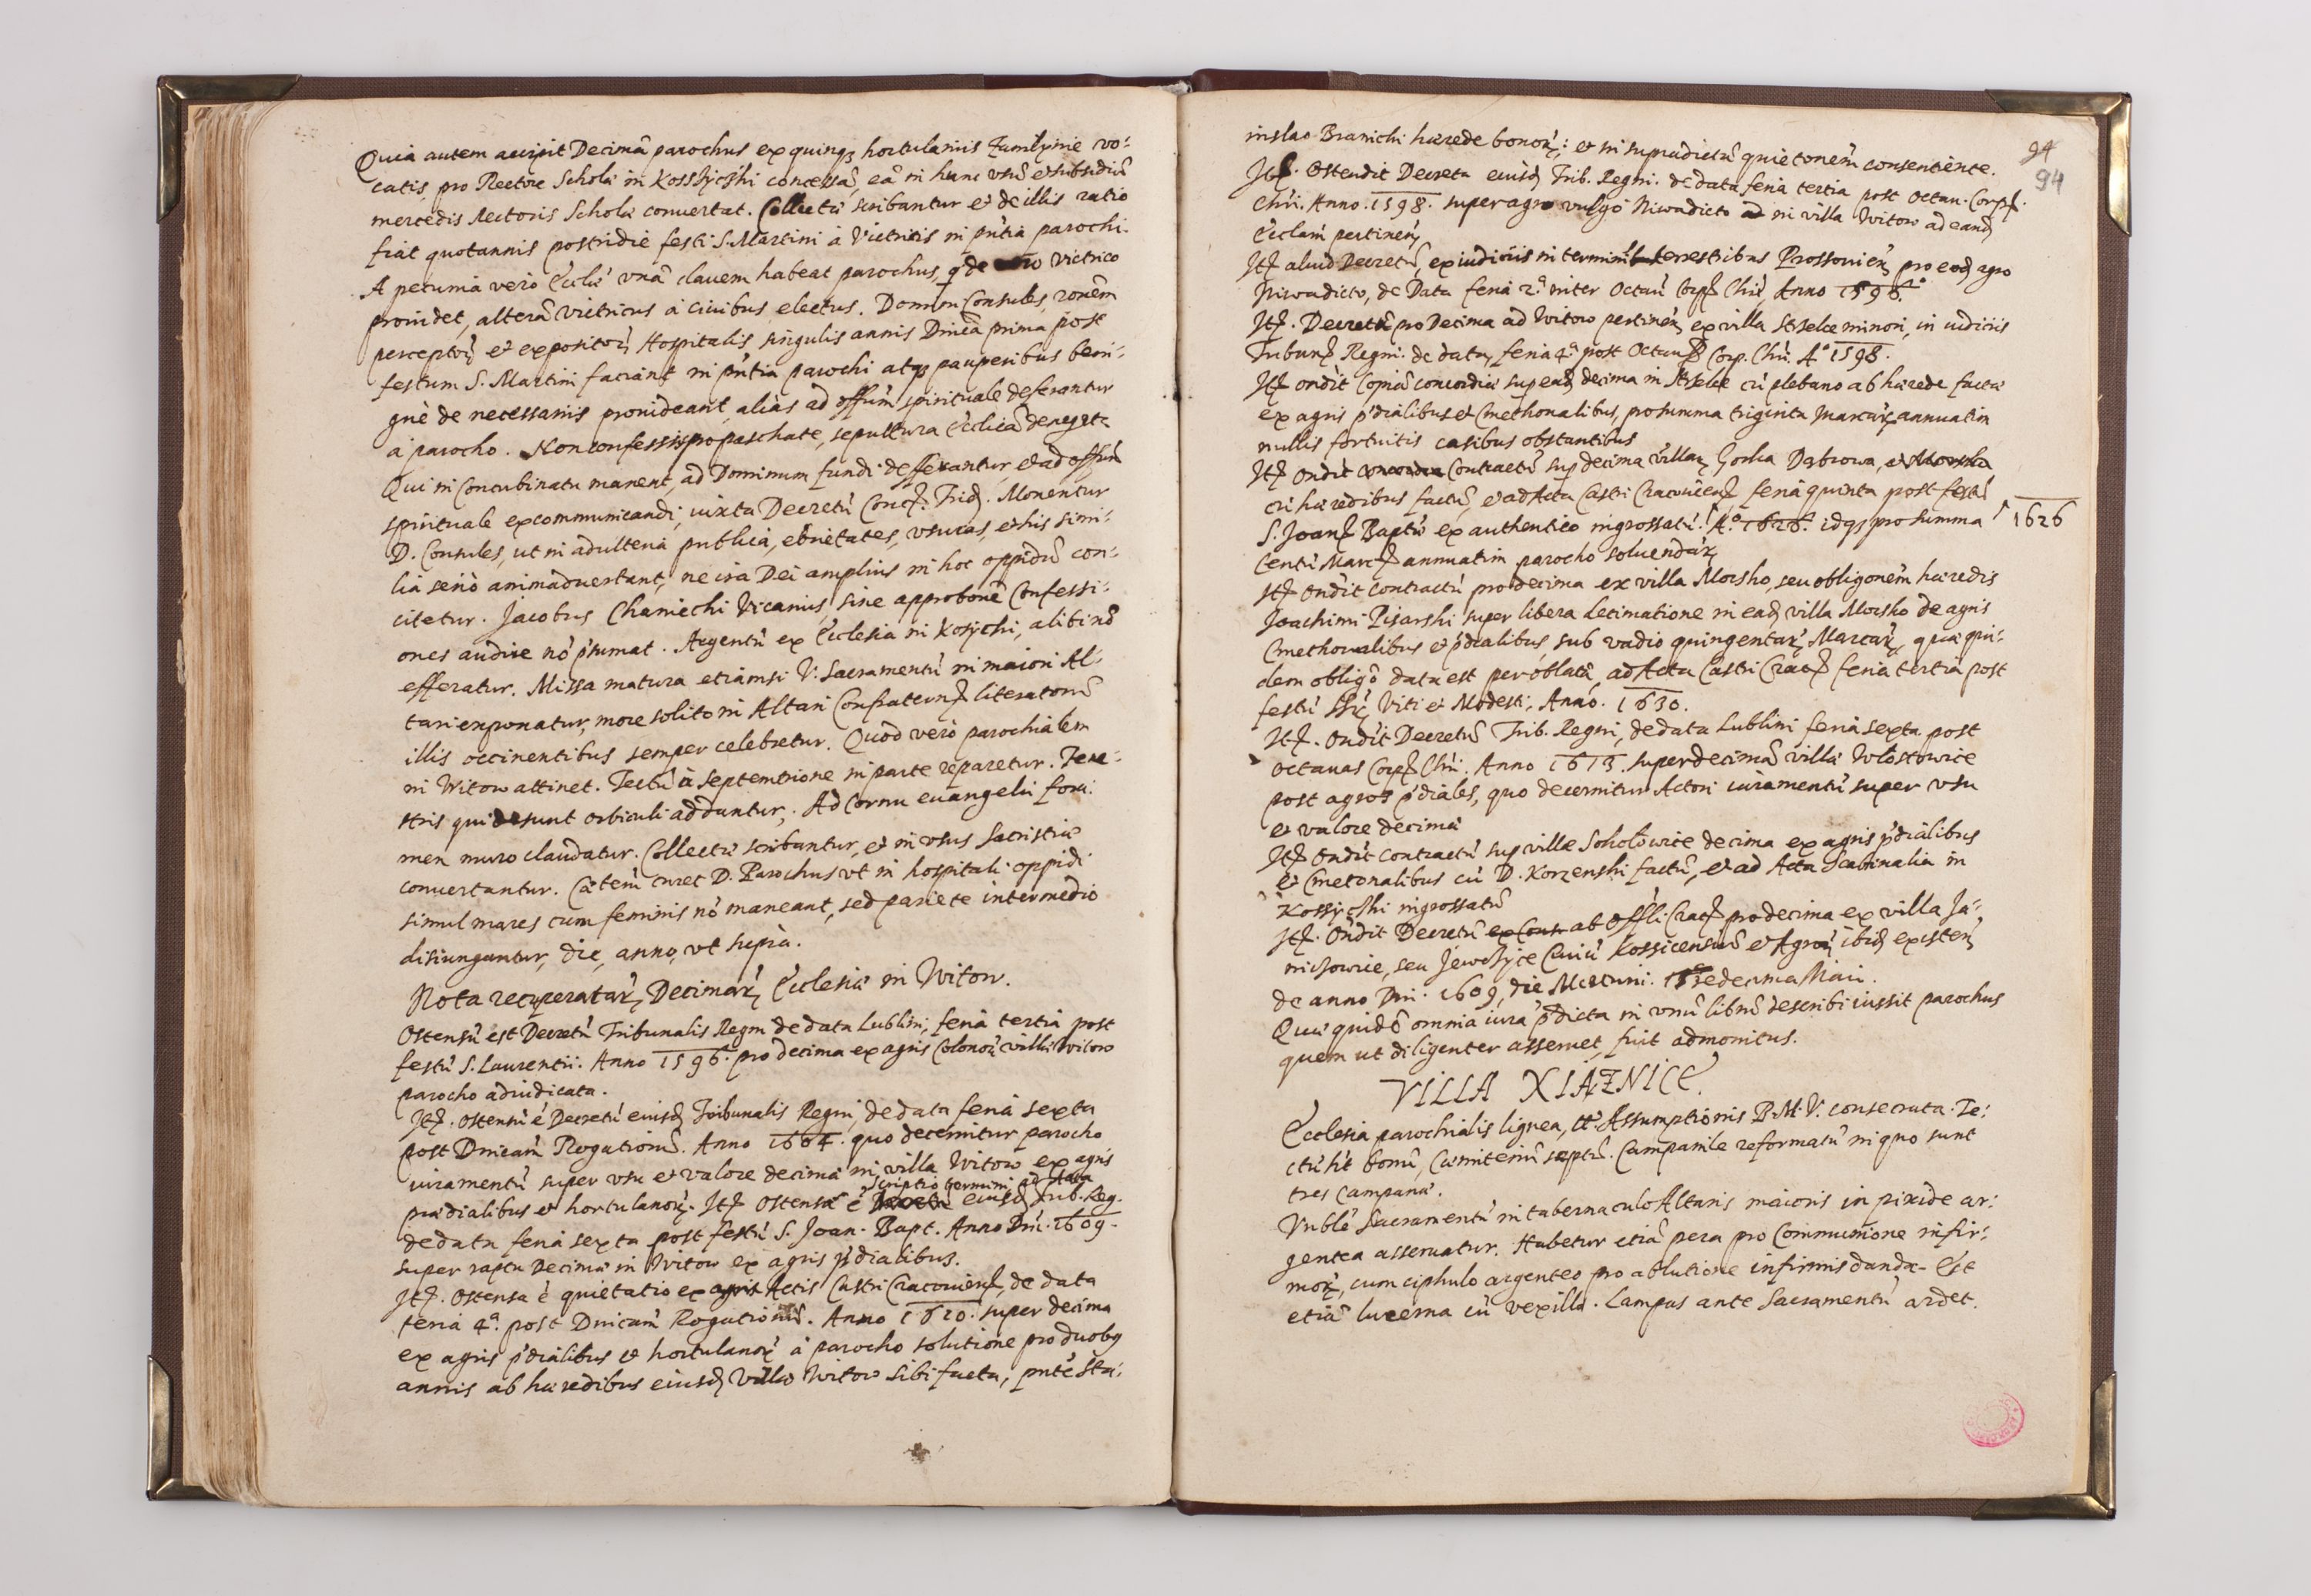 Quia autem accipit Decimā parochus ex quinqȝ hortulanis Zamlynie vo:
catis, pro Rectore Scholæ in Kossyczki concessā, eā in hunc vsū et subsidiū
mercedis Rectoris Scholæ conuertat. Collectæ scribantur et de illis ratio
fiat quotannis postridie festi S. Martini à Victricis in pñtia parochi.
A pecunia verò Eccliæ vnā clauem habeat parochus, q de victrico
prouidet, alterā victricus à ciuibus electus. Domini Consules, rōnem
perceptorū et expositorū Hospitalis singulis annis Dnica prima post
festum S. Martini faciant in pñtia parochi atqȝ pauperibus beni:
gnè de necessariis prouideant, aliàs ad offūm spirituale deferantur
à parocho. Non confessis pro paschate, sepultura Eccliæ denegetr
Qui in Concubinatu manent, ad Dominum fundi defferantur, et ad offūm
spirituale excommunicandi, iuxta Decretū Conc. Trid. Monentur
D. Consules, ut in adulteria publica, ebrietates, vsuras, et his simi:
lia seriò animaduertant, ne ira Dei amplius in hoc oppidū con:
citetur. Jacobus Chaniecki Vicarius, sine approbōne Confessi:
ones audire nō p̄sumat. Argentū ex Ecclesia in Kosyczki, alibi nō
efferatur. Missa matura etiamsi V. Sacramentū in maiori Al:
tari exponatur, more solito in Altari Confratern. literatorū
illis occinentibus semper celebretur. Quod verò parochialem
in Witow attinet. Tectū à septemtrione in parte reparetur. Fene:
stris qui desunt orbiculi addantur. Ad Cornu euangelii fora:
men muro claudatur. Collectæ scribantur, et in vsus Sacristiæ
conuertantur. Cæterū curet D. Parochus vt in hospitali oppidi
simul mares cum feminis nō maneant, sed pariete intermedio
disiungantur, die, anno, vt supra.
Nota recuperatarū Decimarū Ecclesiæ in Witow.
Ostensū est Decretū Tribunalis Regni de data Lublini, feria tertia post
festū S. Laurentii. Anno 1596. pro decima ex agris Colonorū villæ Witow
parocho adiudicata.
Jt. Ostensū ē Decretū eiusd Tribunalis Regni, de data feria sexta
post Dnicam Rogationū. Anno 1604. quo decernitur parocho
iuramentū super vsu et valore decimæ in villa Witow ex agris
scriptio termini ad Acta
prædialibus et hortulanorū. Jt Ostensa ē Decretū eiusd Trib. Reg.
de data feria sexta post festū S. Joan. Bapt. Anno Dni. 1609.
super raptu Decimæ in Witow ex agris p̄dialibus.
Jt. Ostensa ē quietatio ex agris Actis Castri Cracouien, de data
feria 4ª. post Dnicam Rogationū. Anno 1610. super decima
ex agris p̄dialibus et hortulanorū à parocho solutione pro duobȝ
annis ab hæredibus eiusd Villæ Witow sibi facta, pñte Sta:
94
94
nislao Branicki hærede bonorū; et in supradictū quietonem consentiente.
Jt. Ostendit Decreta eiusd Trib. Regni. de data feria tertia post Octau. Corp.
Chri. Anno. 1598. super agro vulgo Niwa dicto ad in villa Witow ad eand
Ecclam pertinen
Jt aliud Decretū, ex iudiciis in terminis terrestribus Prossouien pro eod agro
Niwa dicto, de Data feria 2ª inter Octau Corp Chri, Anno 1596.
Jt. Decretū pro Decima ad Witow pertinen ex villa Strzelce minori, in iudiciis
Tribunal Regni. de data, feria 4ª post Octau Corp. Chri. A° 1598.
Jt ondit Copiā concordiæ sup ead decima in Strzelce cū plebano ab hærede factæ
ex agris p̄dialibus et Cmethonalibus, pro summa triginta Marcarū annuatim
nullis fortuitis casibus obstantibus
Jt Ondit concordiæ Contractū sup decima villarū Gorka Dąbrowa, et Morsko
cū hæredibus factū, et ad Acta Castri Cracouien feria quinta post festū
S. Joan Baptæ ex authentico ingrossatū. A° 1626. idqȝ pro summa
1626
Centū Marc annuatim parocho soluendarū
Jt ondit contractū pro decima ex villa Morsko, seu obligonem hæredis
Joachimi Pisarski super libera decimatione in ead villa Morsko de agris
Cmethonalibus et p̄dialibus, sub vadio quingentarū Marcarū, quæ qui:
dem obligō data est per oblatā ad Acta Castri Crac feria tertia post
festū SS Viti et Modesti, Anno. 1630.
Jt. Ondit Decretū Trib. Regni, de data Lublini feria sexta post
octauas Corp Chri. Anno 1613. super decimā villæ Włostowice
post agros p̄diales, quo decernitur Actori iuramentū super vsu
et valore decimæ
Jt Ondit contractū sup villæ Sokołowice decima ex agris p̄dialibus
et Cmetonalibus cū D. Korzenski factū, et ad Acta Scabinalia in
Kossyczki ingrossatū
Jt. Ondit Decretū ex Cons ab Offli Crac pro decima ex villa Ja:
nissowice, seu Jewczyce Ciuiū Kossicensiū et Agrorū ibid existen
de anno Dni. 1609, die Mercurii. sedecima Maii.
Quæ quidē omnia iura p̄dicta in vnū librū describi iussit parochus
quem ut diligenter asseruet, fuit admonitus.
VILLA XIĄZNICE.
Ecclesia parochialis lignea, tt° Assumptionis B.M.V. consecrata. Te:
ctū hēt bonū, Cæmiteriū septū. Campanile reformatū in quo sunt
tres Campanæ.
Vnblē Sacramentū in tabernaculo Altaris maioris in pixide ar:
gentea asseruatur. Habetur etiā pera pro Communione infir:
morū, cum ciphulo argenteo pro ablutione infirmis danda. Est
etiā lucerna cū vexillo. Lampas ante Sacramentū ardet.